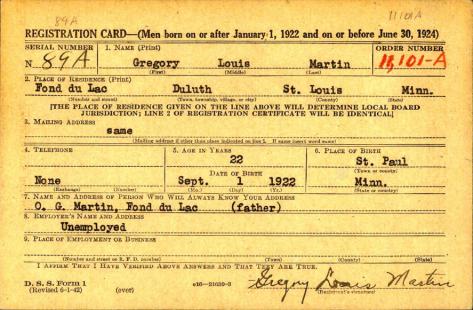 89A 11101A
REGISTRATION CARD—(Men born on or after January 1, 1922 and on or before June 30, 1924)
SERIAL NUMBER 1. NAME (Print) ORDER NUMBER
N 89A Gregory Louis Martin 11,101-A
(First) (Middle) (Last)
2. PLACE OF RESIDENCE (Print)
Fond du Lac Duluth St. Louis Minn.
(Number and street) (Town, township, village, or city) (County) (State)
[THE PLACE OF RESIDENCE GIVEN ON THE LINE ABOVE WILL DETERMINE LOCAL BOARD
JURISDICTION; LINE 2 OF REGISTRATION CERTIFICATE WILL BE IDENTICAL]
3. MAILING ADDRESS
same
(Mailing address if other than place indicated on line 2. If same insert word same)
4. TELEPHONE 5. AGE IN YEARS 6. PLACE OF BIRTH
22 St. Paul
DATE OF BIRTH (Town or county)
None Sept. 1 1922 Minn.
(Exchange) (Number) (Mo.) (Day) (Yr.) (State or country)
7. NAME AND ADDRESS OF PERSON WHO WILL ALWAYS KNOW YOUR ADDRESS
O. G. Martin, Fond du Lac (father)
8. EMPLOYER'S NAME AND ADDRESS
Unemployed
9. PLACE OF EMPLOYMENT OR BUSINESS
(Number and street or R. F. D. number) (Town) (County) (State)
I AFFIRM THAT I HAVE VERIFIED ABOVE ANSWERS AND THAT THEY ARE TRUE.
D. S. S. Form 1 Gregory Louis Martin
(Revised 6-1-42) (over) (Registrant's signature)